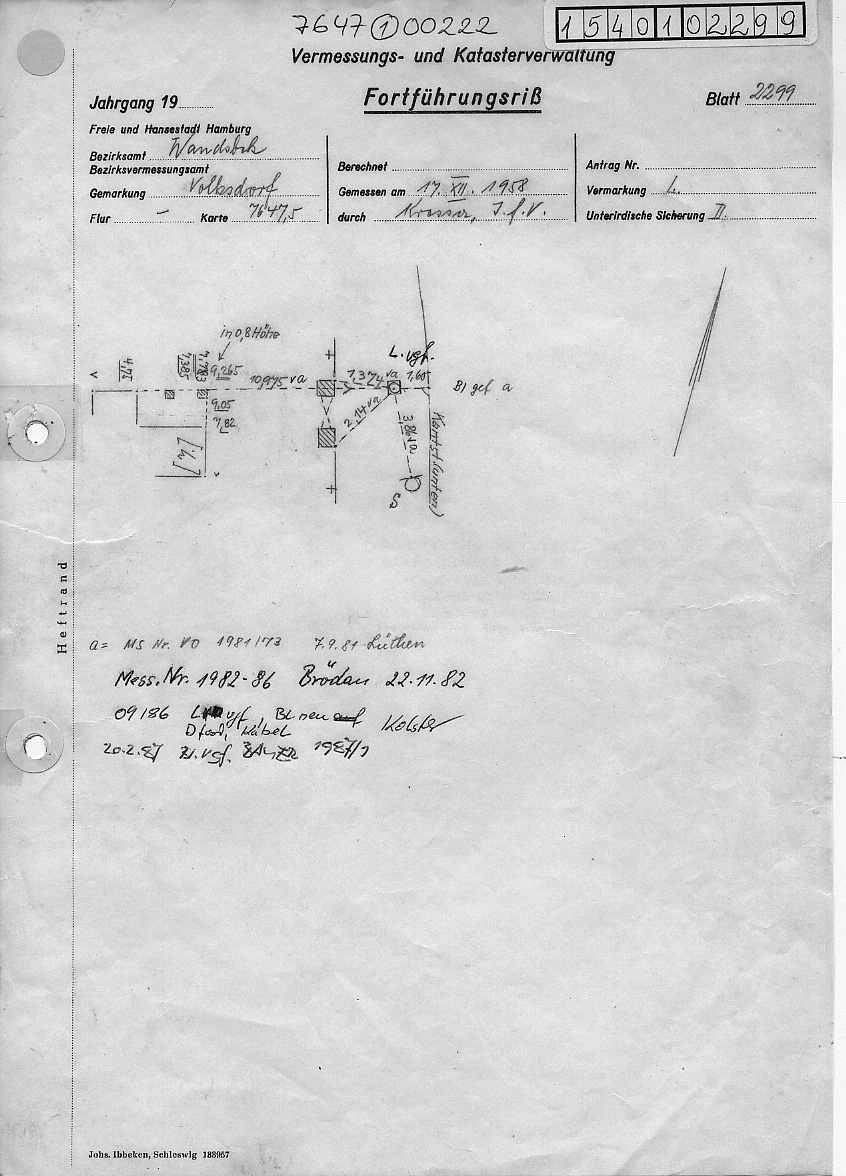 7647 1 00222
1540102299
Vermessungs- und Katasterverwaltung
Jahrgang 19
Fortführungsriß
Blatt 2299
Freie und Hansestadt Hamburg
Bezirksamt Wandsbek
Bezirksvermessungsamt
Gemarkung Volksdorf
Flur – Karte 7647,5
Berechnet
Gemessen am 17. XII. 1958
durch
Antrag Nr.
Vermarkung L.
Unterirdische Sicherung D.
in 0,8 Höhe
L. vgf.
9,265
10,975 va
va 1,60
Bl gef a
9,05
7,82
2,14 va
3,86 va
Kantst. (unten)
[ih]
S
Heftrand
a = MS Nr. VO 1981/73 7.9.81 Lüthen
Mess. Nr. 1982-86 Brödau 22.11.82
09/86 L vgf, BL neu
Kabel
20.2.87 vgf. 1987/1
Johs. Ibbeken, Schleswig 188957